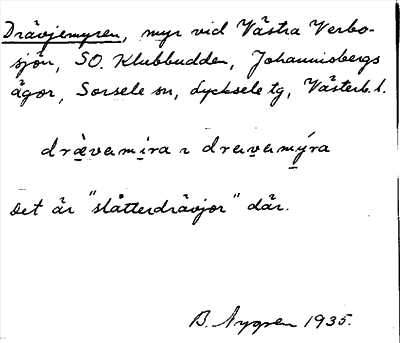 Drävjemyren, myr vid Västra Verbo-
sjön, SO. Klubbudden, Johannisbergs
ägor, Sorsele sn, Lycksele tg, Västerb. l.
drävamira ı dravamýra
Det är "slåtterdrävjor" där.
B. Nygren 1935.